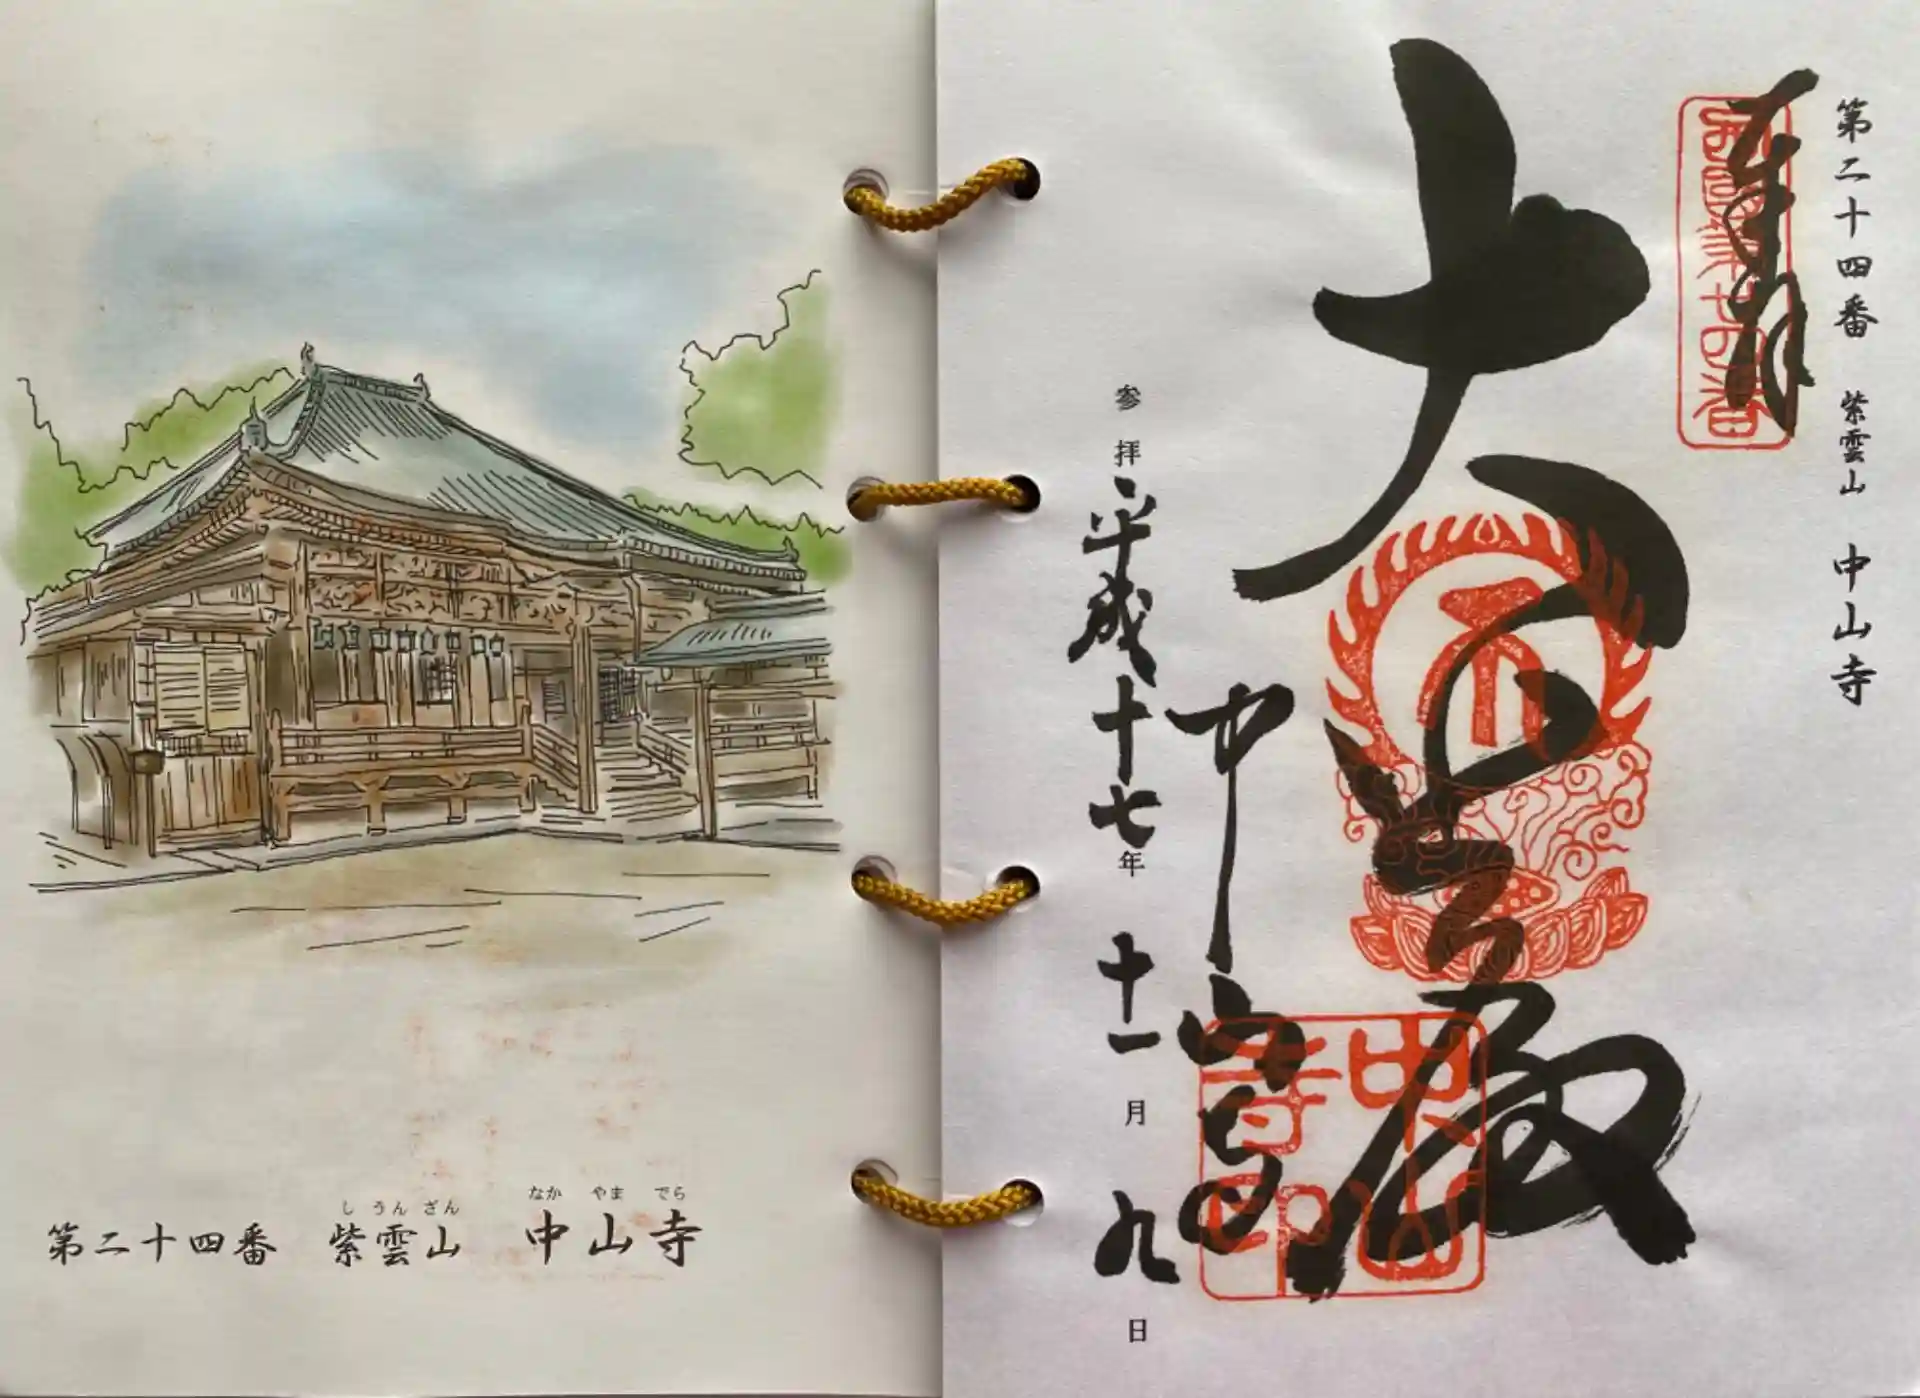 第二十四番 紫雲山 中山寺
しうんざん なかやまでら
奉拝
西国第廿四番
大悲殿
中山寺
中山寺印
参拝 平成十七年 十一月 九日
第二十四番 紫雲山 中山寺